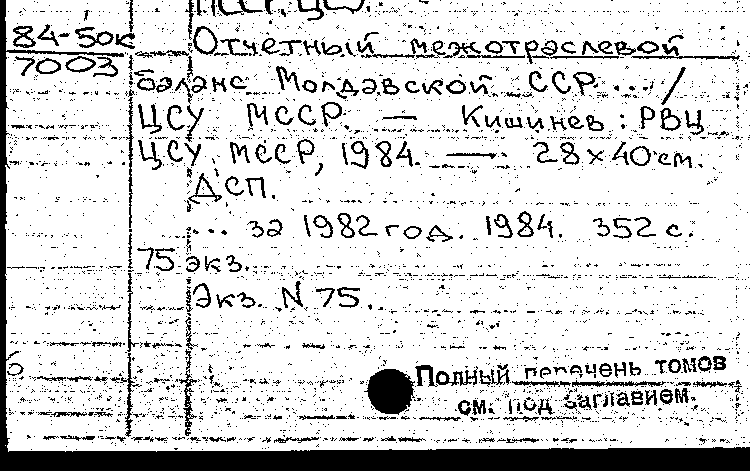 МССР. ЦСУ.
84-50к
7003
Отчетный межотраслевой
баланс Молдавской ССР ... /
ЦСУ МССР. — Кишинев : РВЦ
ЦСУ МССР, 1984. — 28×40 см.
ДСП.
... за 1982 год. 1984. 352 с.
75 экз.
Экз. N 75.
Полный перечень томов
см. под заглавием.